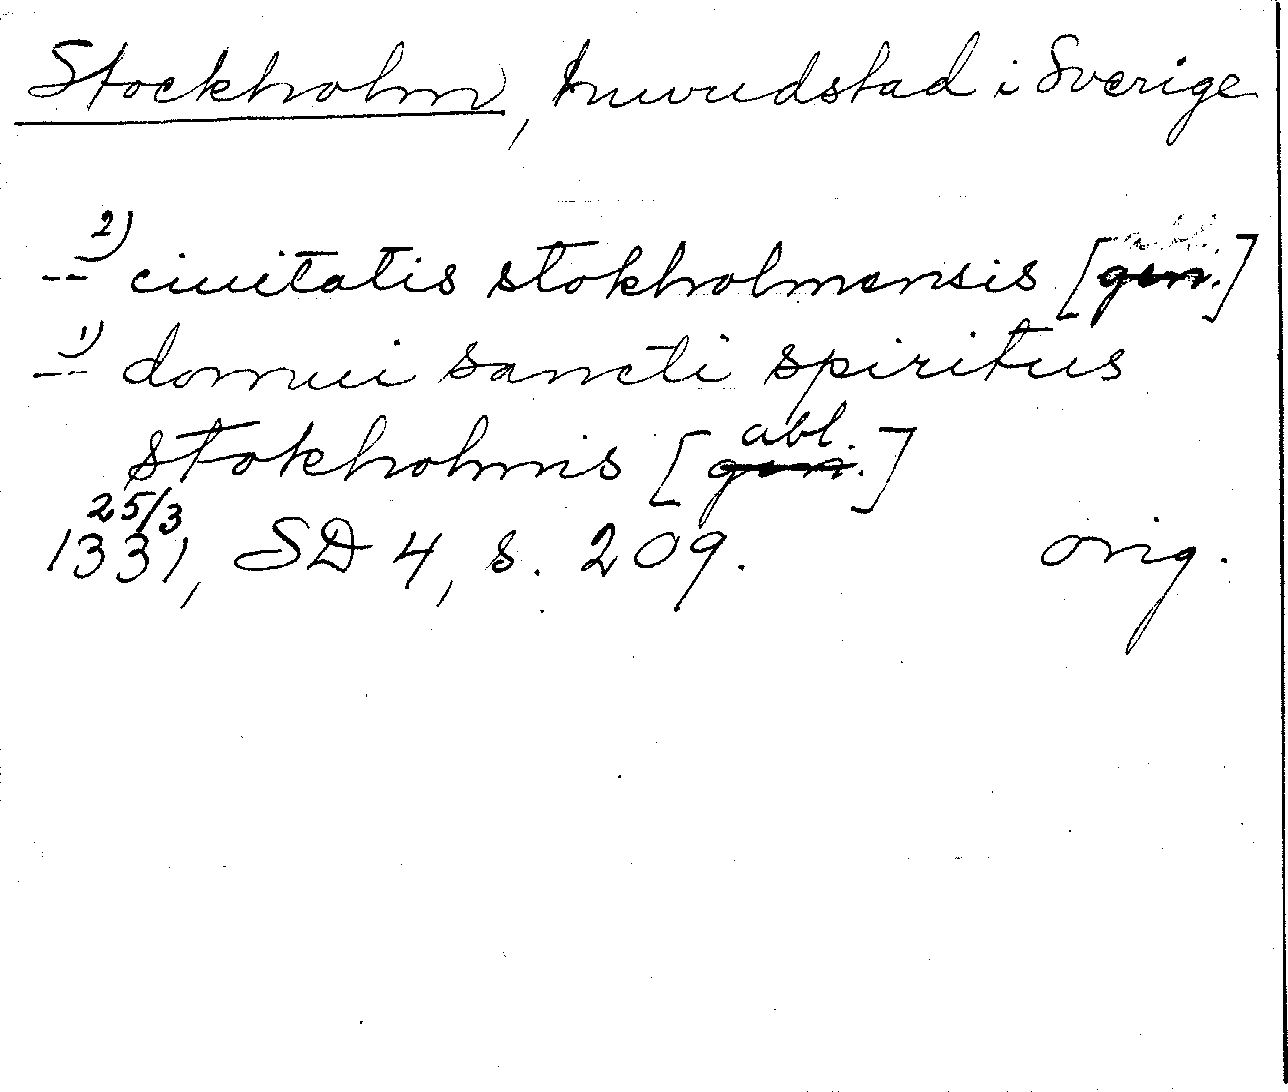 Stockholm, huvudstad i Sverige
2)
-- ciuitatis stokholmensis [gen.] abl.
1)
-- domui sancti spiritus
stokholmis [gen.] abl.
25/3
1331, SD 4, s. 209. orig.